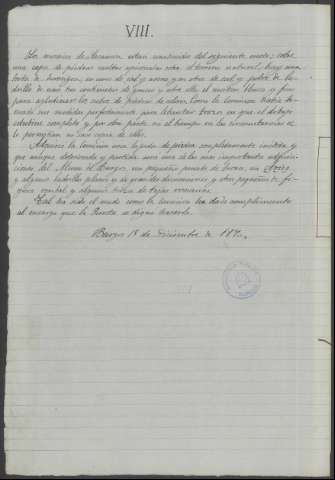 VIII.
Los mosaicos de Clunia están construidos del siguiente modo; sobre
una capa de piedras sueltas apisonadas sobre el terreno natural, hay una
torta de hormigón, en unos de cal y arena y en otros de cal y polvo de la-
drillo de unos tres centímetros de grueso y sobre ella el mortero blanco y fino
para aglutinar los cubos de piedras de color. Como la Comision había to-
mado sus medidas perfectamente para levantar trozos en que el dibujo
estuviese completo y por otra parte ni el tiempo ni las circunstancias se
lo permitían no sacó copia de ellos.
Adquirió la Comision una lápida de piedra completamente inédita y
que aunque deteriorada y partida será una de las mas importantes adquisi-
ciones del Museo de Burgos, un pequeño penate de bronce, un
y algunos ladrillos planos y de grandes dimensiones y otros pequeños de for-
ma y algunos trozos de tejas romanas.
Tal ha sido el modo como la Comision ha dado cumplimiento
al encargo que la se dignó hacerla.
Burgos 18 de Diciembre de